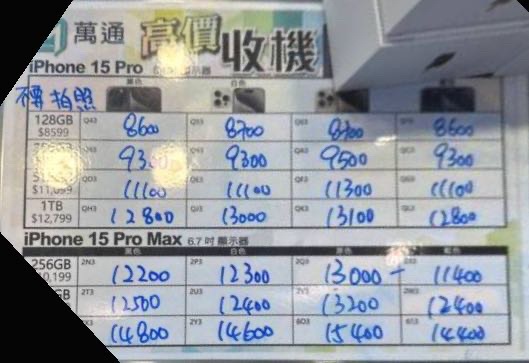 萬通 高價收機
iPhone 15 Pro 顯示器
不準拍照 黑色 白色
128GB $8599 Q43 8600 Q33 8700 8700 8600
9300 9300 9500 9300
$11,099 QD3 11100 11100 11300 11100
1TB $12,799 QH3 12800 QJ3 13000 QK3 13100 12800
iPhone 15 Pro Max 6.7 吋 顯示器
黑色 白色 原色 藍色
256GB 2N3 12200 2P3 12300 2Q3 13000 - 11400
2T3 12500 2U3 12400 2V3 13200 12400
14800 2Y3 14600 6D3 15400 14400